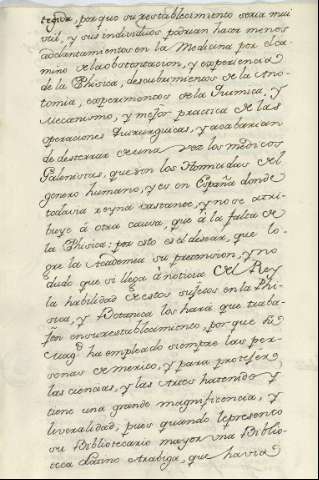 porque su restablecimiento seria mui
util, y sus individuos podrian hacer menos
adelantamientos en la Medicina por el ca-
mino de la obserbacion, y experiencia
de la Phisica, descubrimientos de la Ana-
tomia, experimentos de la Quimica, y
Mecanismo, y mejor practica de las
operaciones Quirurguicas, y acabarian
de desterrar de una vez los medicos
Galenistas, que son los Homicidas del
genero humano, y es en España donde
todavia reyna bastante, y no se atri-
buye à otra causa, que à la falta de
la Phisica: por esto es el desear, que lo-
gre la Academia su pretension, y no
dudo que si llega à noticia del Rey
la habilidad de estos sujetos en la Phi-
sica, y Botanica los hará que traba-
jen en su restablecimiento, porque S.
Mag.d ha empleado siempre las per-
sonas de merito, y para proteger
las ciencias, y las Artes haciendo y
tiene una grande magnificencia, y
liveralidad, pues quando le presentó
su Bibliotecario mayor una Biblio-
teca Latino Arabiga, que havia